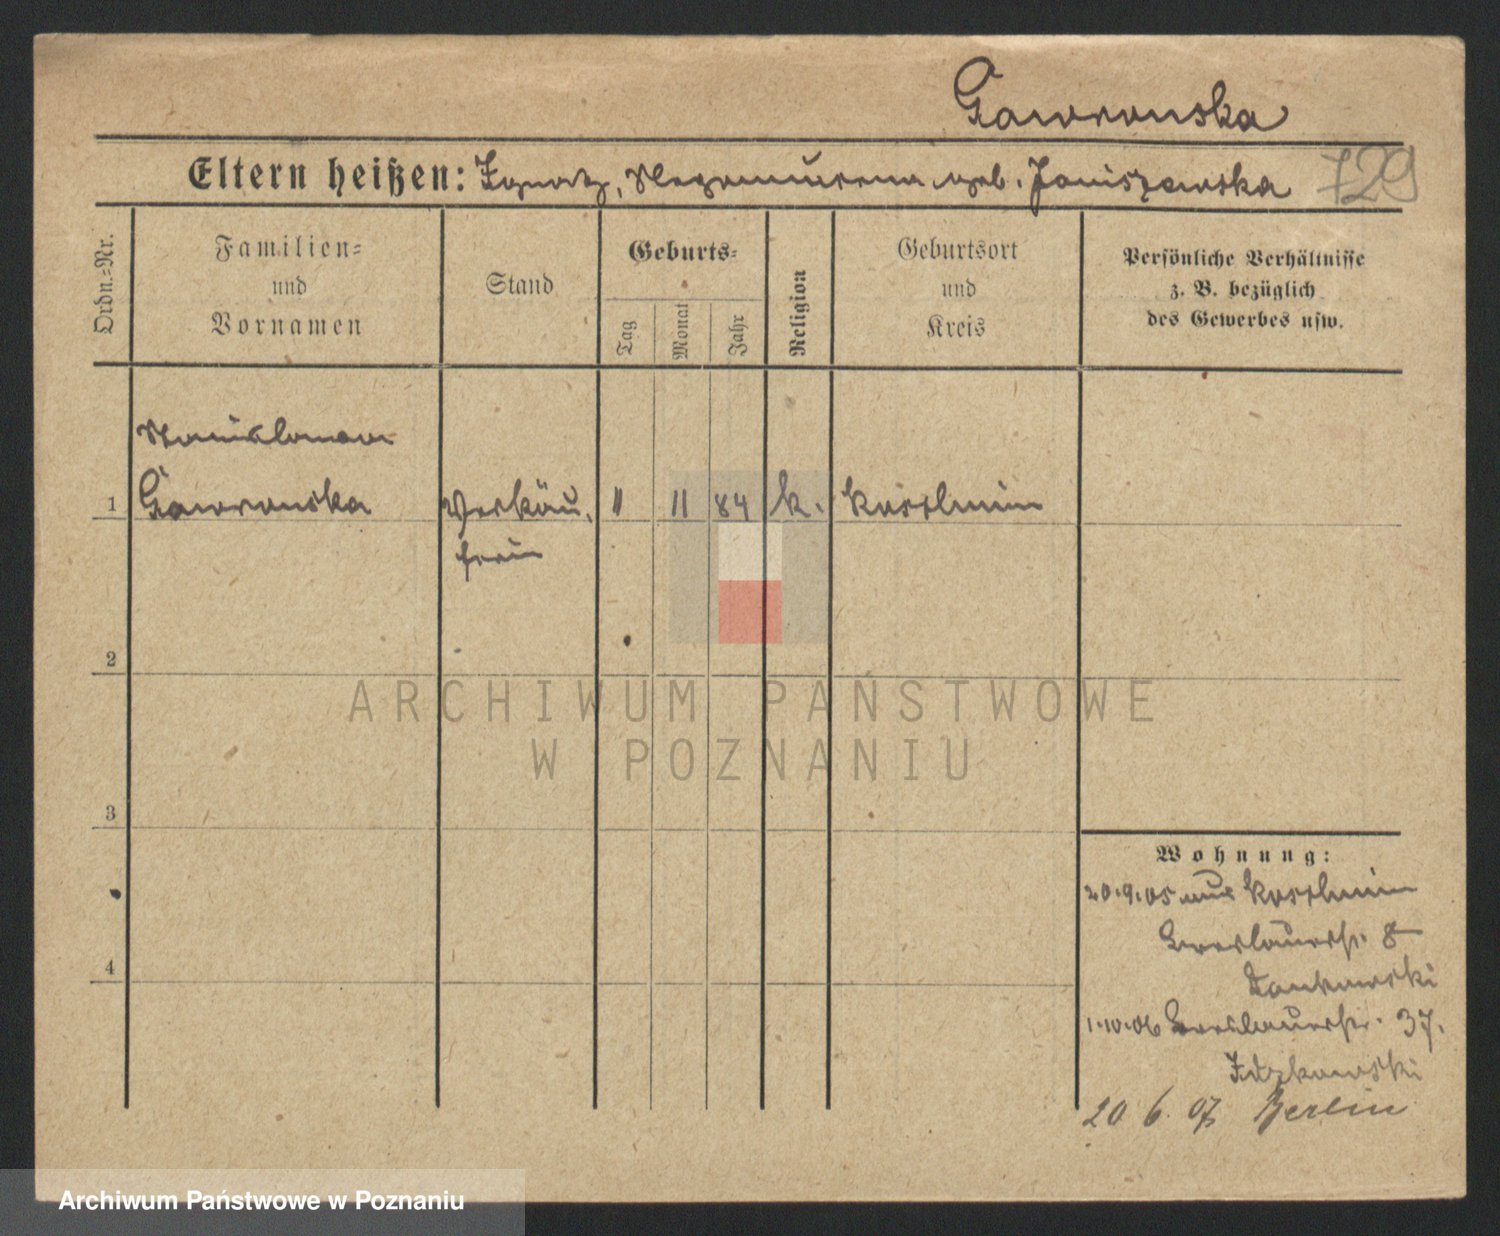 Gaworonska
Eltern heißen: Ignatz, geb. Janiszewska
729
Ordn.-Nr.
Familien-
und
Vornamen
Stand
Geburts-
Tag
Monat
Jahr
Religion
Geburtsort
und
Kreis
Persönliche Verhältnisse
z. B. bezüglich
des Gewerbes usw.
Stanislawa
1 Gaworonska Verkäu- 11 11 84 k. Kostschin
ferin
2
ARCHIWUM PAŃSTWOWE
W POZNANIU
3
Wohnung:
20.9.05 aus Kostschin
Breslauerstr. 8
4
1.10.06 Breslauerstr. 37.
20 6. 07 Berlin
Archiwum Państwowe w Poznaniu